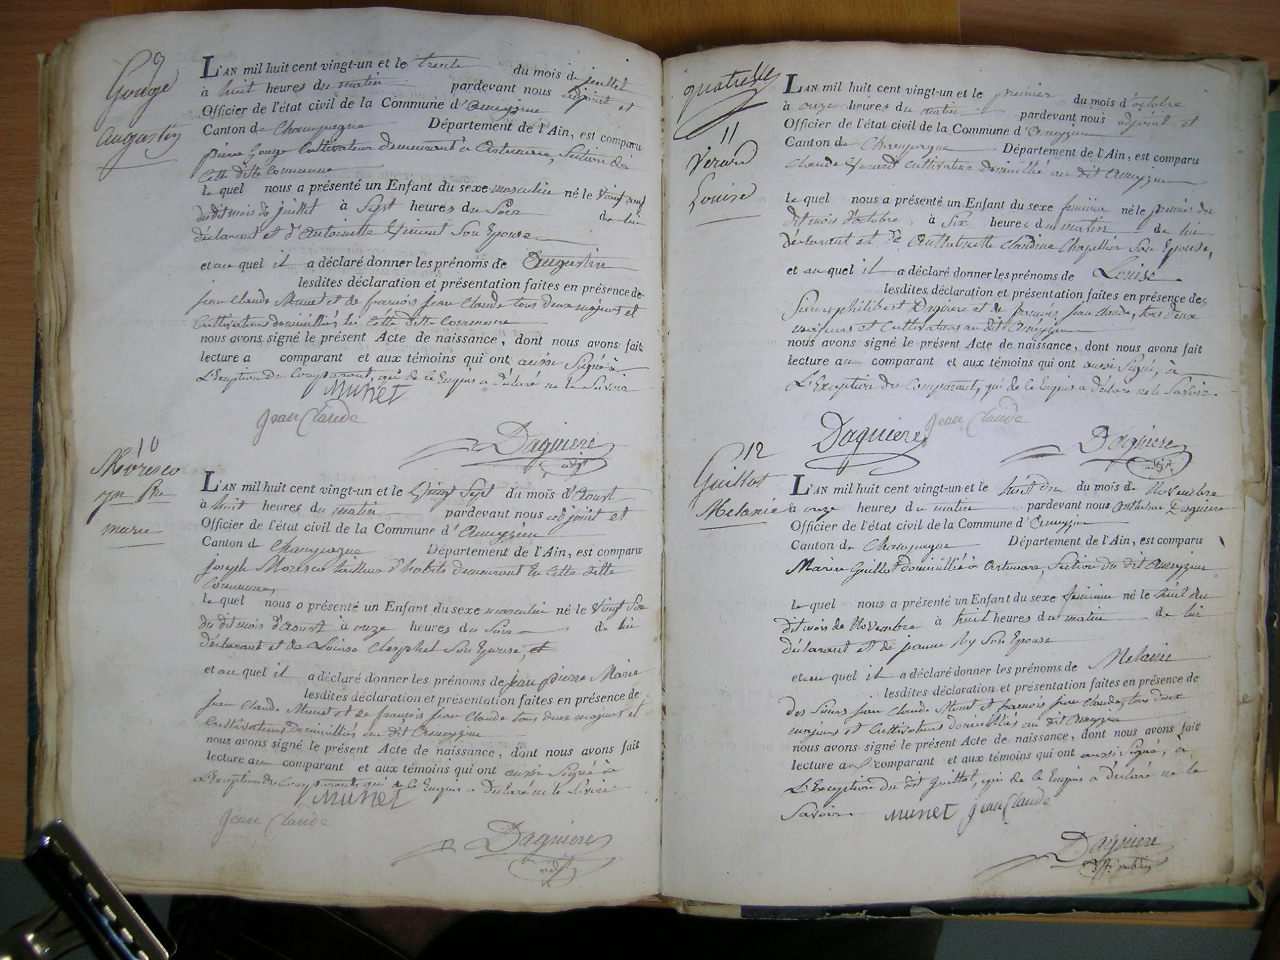 9
Gouge
augustin
L'AN mil huit cent vingt-un et le trente du mois de juillet
à huit heures du matin pardevant nous adjoint et
Officier de l'état civil de la Commune d'Aveyzieu
Canton de Champagne Département de l'Ain, est comparu
pierre Gouge Cultivateur demeurant à section du
Cette ditte Commune
le quel nous a présenté un Enfant du sexe masculin né le vingt neuf
du dit mois de juillet à Sept heures du Soir de lui
déclarant et d'Antoinette son Epouse
et au quel il a déclaré donner les prénoms de Augustin
lesdites déclaration et présentation faites en présence de
jean Claude Munet et de francois jean Claude tous deux majeurs et
Cultivateurs domiciliés en Cette ditte Commune
nous avons signé le présent Acte de naissance, dont nous avons fait
lecture a comparant et aux témoins qui ont aussi Signé à
L'Exception du Comparant, qui de ce Enquis a déclaré ne le Savoir
Munet
Jean Claude
Daguiere
adjt
10
Moresco
jn Pre
marie
L'AN mil huit cent vingt-un et le Vingt Sept du mois d'Aoust
à huit heures du matin pardevant nous adjoint et
Officier de l'état civil de la Commune d'Aveyzieu
Canton de Champagne Département de l'Ain, est comparu
joseph Moresco tailleur d'habits demeurant en Cette ditte
Commune
le quel nous a présenté un Enfant du sexe masculin né le Vingt Six
du dit mois d'Aoust à onze heures du Soir de lui
déclarant et de Louise son Epouse, et
et au quel il a déclaré donner les prénoms de jean pierre Marie
lesdites déclaration et présentation faites en présence de
jean Claude Munet et de françois jean Claude tous deux majeurs et
Cultivateurs domiciliés au dit Aveyzieu
nous avons signé le présent Acte de naissance, dont nous avons fait
lecture au comparant et aux témoins qui ont aussi Signé à
L'Exception du Comparant, qui de ce Enquis a déclaré ne le Savoir
Munet
Jean Claude
Daguiere
adjt
quatre
11
Verard
Louise
L'AN mil huit cent vingt-un et le premier du mois d'octobre
à onze heures du matin pardevant nous adjoint et
Officier de l'état civil de la Commune d'Aveyzieu
Canton de Champagne Département de l'Ain, est comparu
Claude Verard Cultivateur Domicilié au dit Aveyzieu
le quel nous a présenté un Enfant du sexe feminin né le premier du
dit mois d'octobre à Six heures du matin de lui
déclarant et de Anthelmette Claudine Chapellon Son Epouse,
et au quel il a déclaré donner les prénoms de Louise
lesdites déclaration et présentation faites en présence des
Sieurs philibert Daguiere et de francois jean Claude, tous deux
majeurs et Cultivateurs au dit Aveyzieu
nous avons signé le présent Acte de naissance, dont nous avons fait
lecture au comparant et aux témoins qui ont aussi Signé, à
L'Exception du Comparant, qui de ce Enquis a déclaré ne le Savoir
Daguiere Jean Claude
Daguiere
adjt
12
Guillot
Melanie
L'AN mil huit cent vingt-un et le huit du mois de Novembre
à onze heures du matin pardevant nous Anthelme Daguiere
Officier de l'état civil de la Commune d'Aveyzieu
Canton de Champagne Département de l'Ain, est comparu
Marin Guillot domicilié à Section du dit Aveyzieu
le quel nous a présenté un Enfant du sexe feminin né le huit du
dit mois de Novembre à huit heures du matin de lui
déclarant et de jeanne Ny son Epouse
et au quel il a déclaré donner les prénoms de Melanie
lesdites déclaration et présentation faites en présence de
des Sieurs jean Claude Munet et francois jean Claude, tous deux
majeurs et Cultivateurs domiciliés au dit Aveyzieu
nous avons signé le présent Acte de naissance, dont nous avons fait
lecture au comparant et aux témoins qui ont aussi Signé, à
L'Exception du dit Guillot, qui de ce Enquis a déclaré ne le
Savoir Munet Jean Claude
Daguiere
off. public